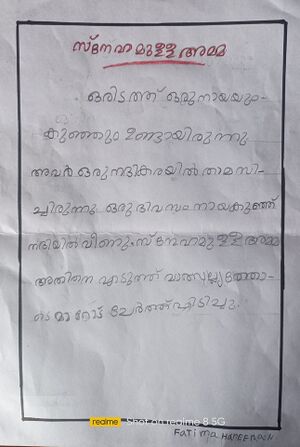 സ്നേഹമുള്ള അമ്മ
ഒരിടത്ത് ഒരു നായയും-
കുഞ്ഞും ഉണ്ടായിരുന്നു
അവർ ഒരു നദികരയിൽ താമസി-
ച്ചിരുന്നു ഒരു ദിവസം നായകുഞ്ഞ്
നദിയിൽ വീണു. സ്നേഹമുള്ള അമ്മ
അതിനെ എടുത്ത് വാത്സല്യത്തോ-
ടെ മാറോട് ചേർത്ത് പിടിച്ചു.
realme Shot on realme 8 5G
Fatima